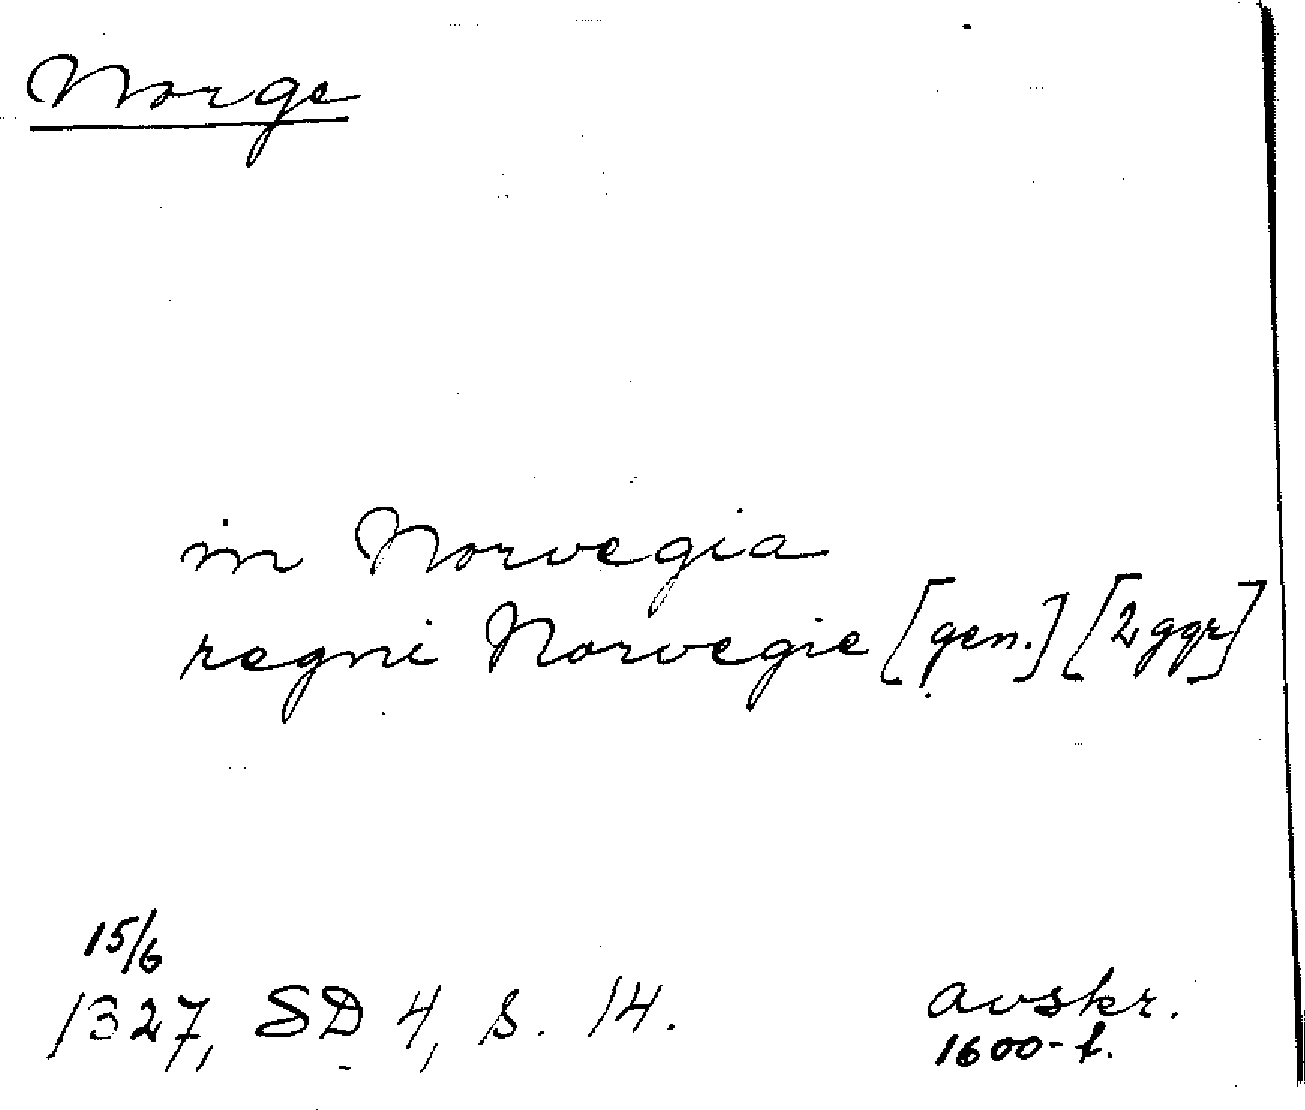 Norge
in Norvegia
regni Norvegie [gen.] [2 ggr]
15/6
1327, SD 4, s. 14.
avskr.
1600-t.